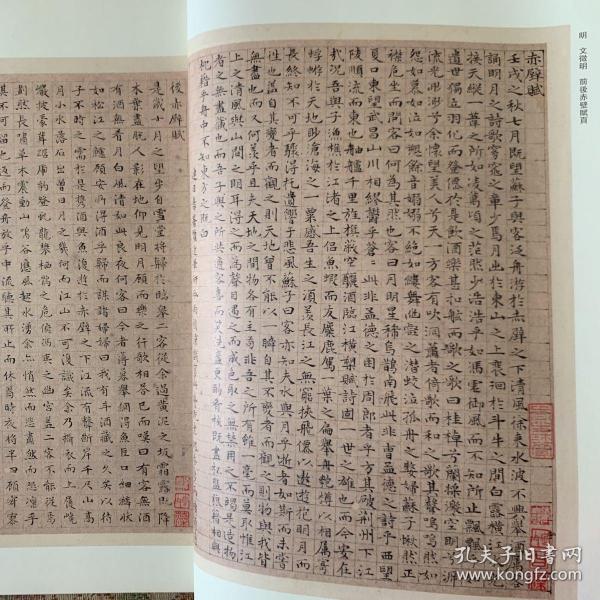 明 文徵明 前後赤壁賦頁
赤壁賦
壬戌之秋七月既望蘇子與客泛舟游於赤壁之下清風徐來水波不興舉酒屬客
誦明月之詩歌窈窕之章少焉月出於東山之上裴徊於斗牛之間白露橫江水光
接天縱一葦之所如凌萬頃之茫然浩浩乎如馮虛御風而不知所止飄飄
遺世獨立羽化而登僊於是飲酒樂甚扣舷而歌之歌曰桂棹兮蘭槳擊空明兮泝
流光渺渺兮余懷望美人兮天一方客有吹洞簫者倚歌而和之其聲嗚嗚然如
怨如慕如泣如訴餘音嫋嫋不絕如縷舞幽壑之潛蛟泣孤舟之嫠婦蘇子愀然正
襟危坐而問客曰何為其然也客曰月明星稀烏鵲南飛此非曹孟德之詩乎西望
夏口東望武昌山川相繆鬱乎蒼蒼此非孟德之困於周郎者乎方其破荊州下江
陵順流而東也舳艫千里旌旗蔽空釃酒臨江橫槊賦詩固一世之雄也而今安在
哉況吾與子漁樵於江渚之上侶魚蝦而友麋鹿駕一葉之扁舟舉匏樽以相屬寄
蜉蝣於天地渺滄海之一粟哀吾生之須臾羨長江之無窮挾飛僊以遨遊抱明月而
長終知不可乎驟得托遺響于悲風蘇子曰客亦知夫水與月乎逝者如斯而未嘗
往也蓋自其變者而觀之則天地曾不能以一瞬自其不變者而觀之則物與我皆
無盡也而又何羨乎且夫天地之間物各有主苟非吾之所有雖一毫而莫取惟江
上之清風與山間之明月耳得之而為聲目遇之而成色取之無禁用之不竭是造物
者之無盡藏也而吾與子之所共適客喜而笑洗盞更酌肴核既盡杯盤狼藉相與
枕藉乎舟中不知東方之既白
後赤壁賦
是歲十月之望步自雪堂將歸于臨皋二客從余過黃泥之坂霜露既降
木葉盡脫人影在地仰見明月顧而樂之行歌相答已而嘆曰有客無酒
有酒無肴月白風清如此良夜何客曰今者薄暮舉網得魚巨口細鱗狀
如松江之鱸顧安所得酒乎歸而謀諸婦婦曰我有斗酒藏之久矣以待
子不時之需於是攜酒與魚復遊於赤壁之下江流有聲斷岸千尺山高
月小水落石出曾日月之幾何而江山不可復識矣余乃攝衣而上履巉
巖披蒙茸踞虎豹登虬龍攀栖鶻之危巢俯馮夷之幽宮蓋二客不能從
劃然長嘯草木震動山鳴谷應風起水湧余亦悄然而悲凜乎
其不可留也反而登舟放乎中流聽其所止而休焉時夜將半四顧寂寥
孔夫子旧书网
book.kongfz.com